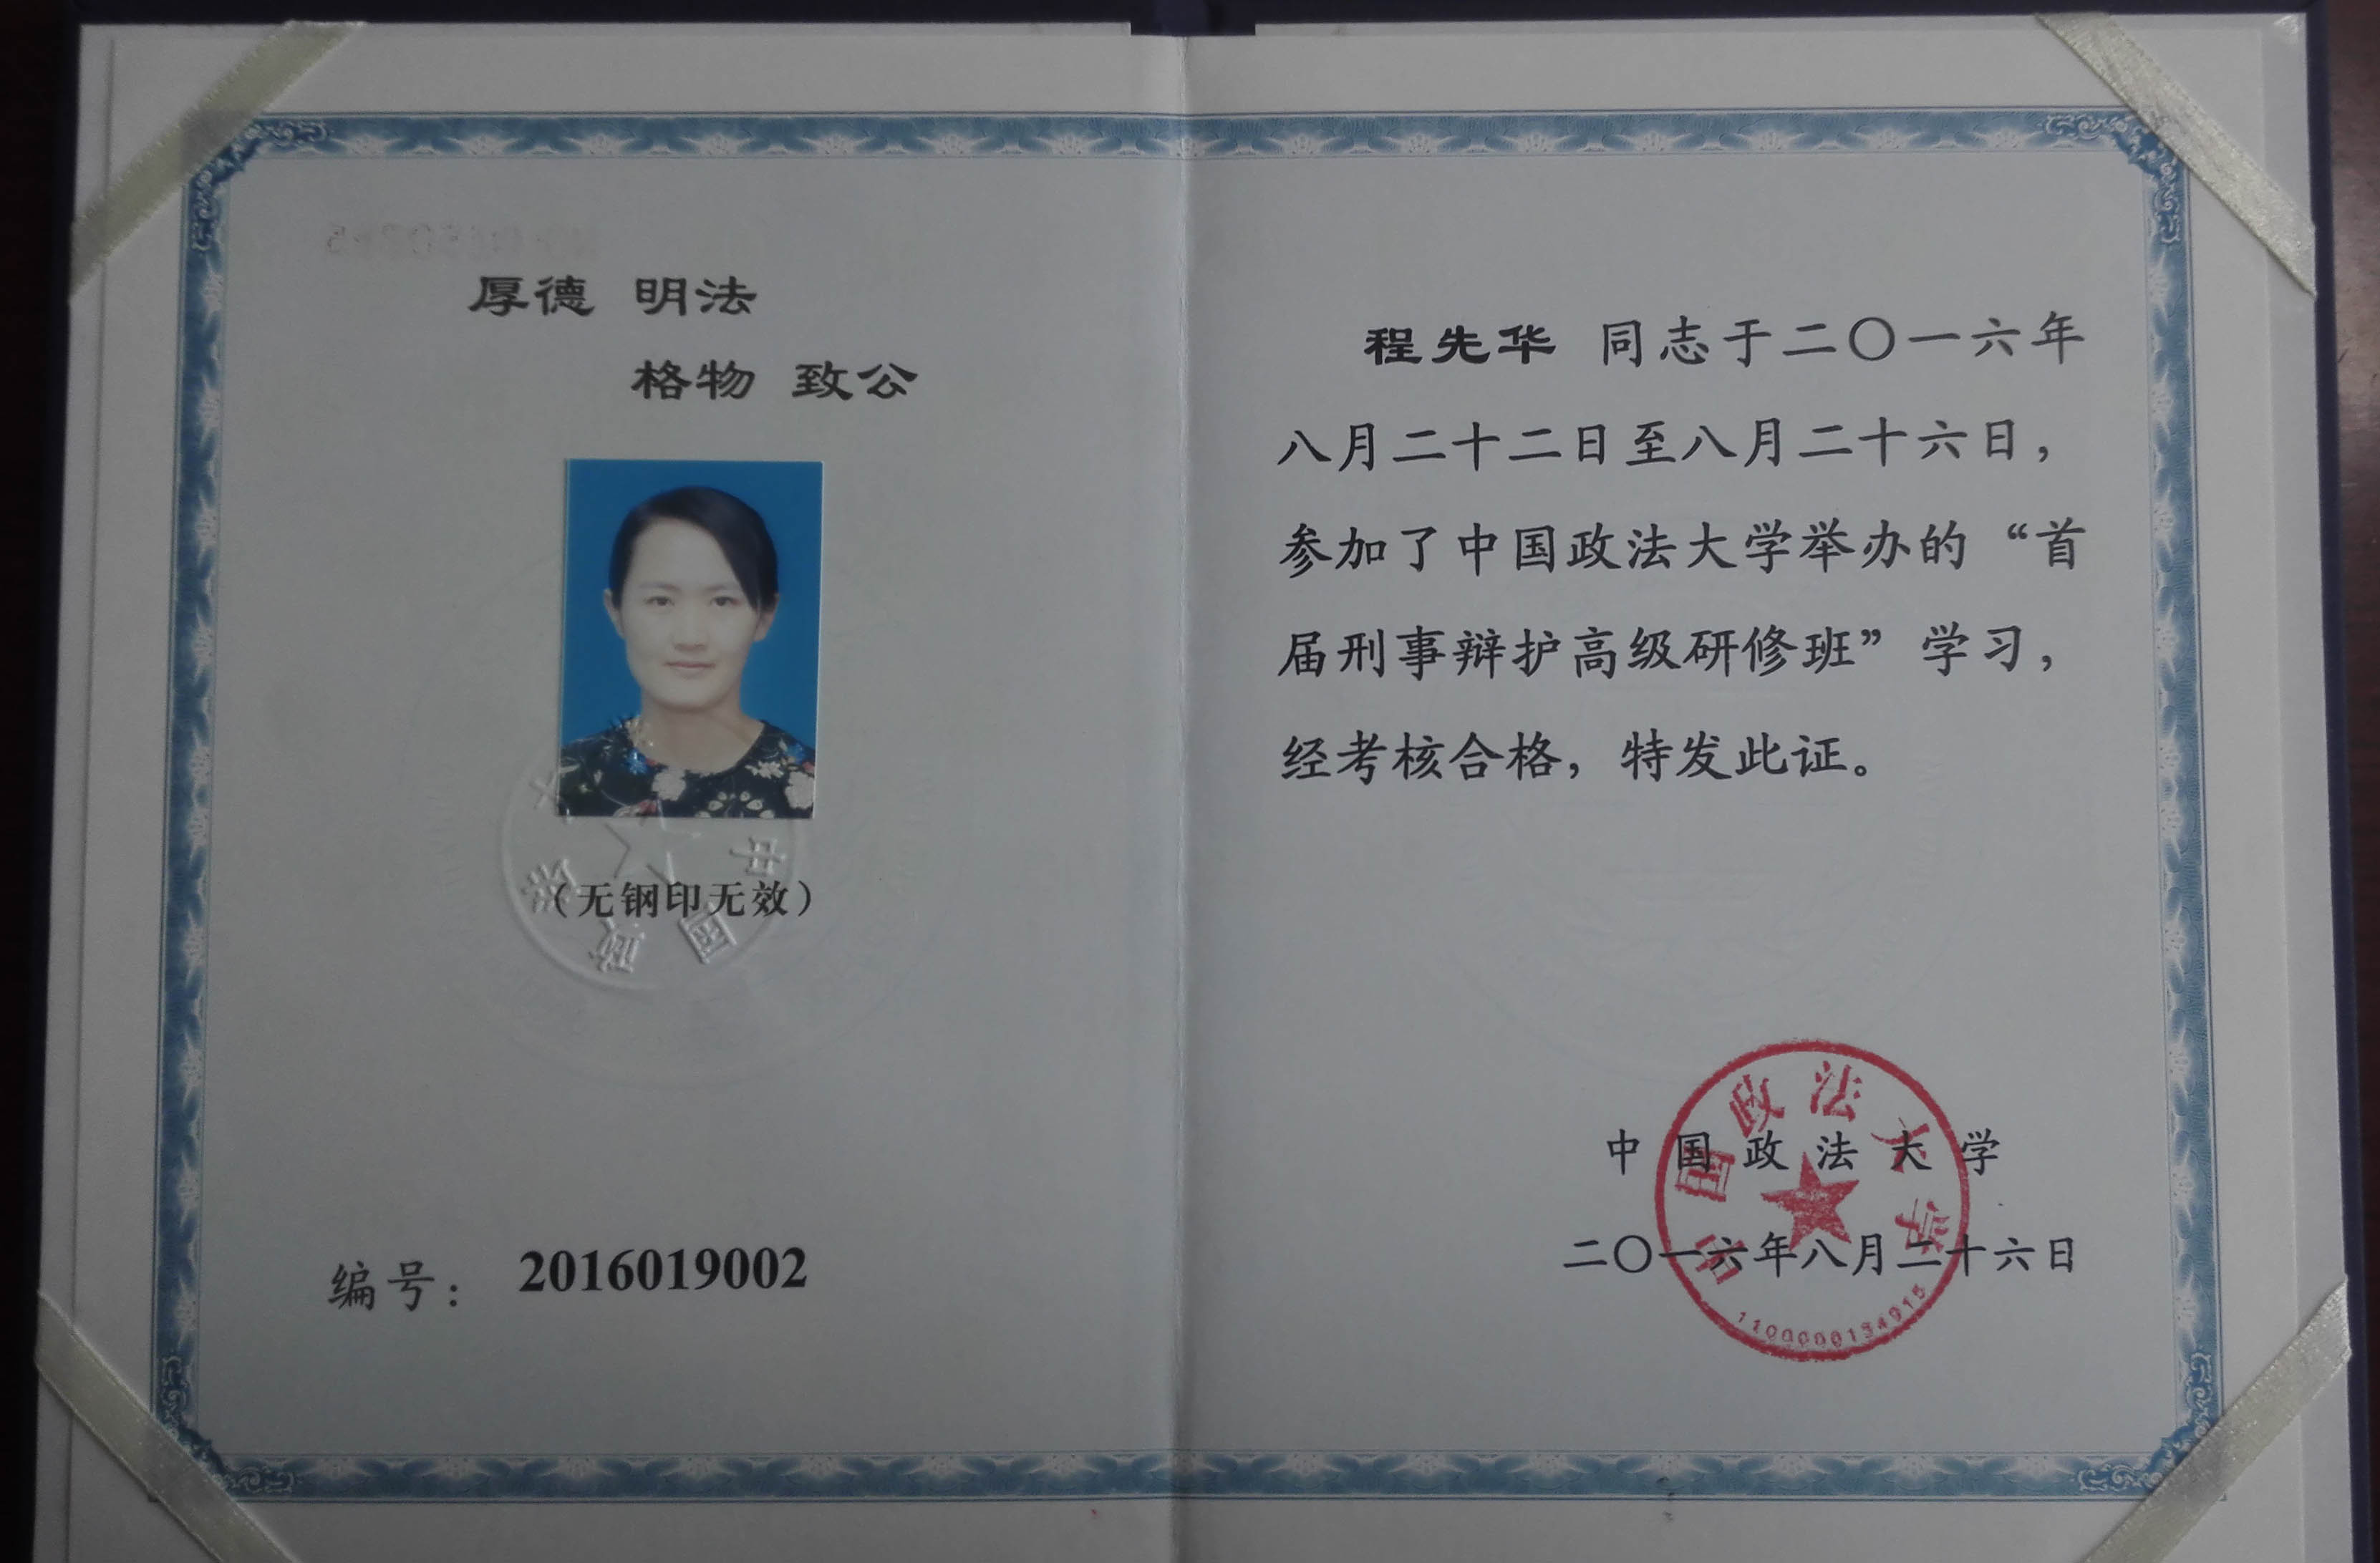 厚德 明法
格物 致公
中国政法大
（无钢印无效）
编号： 2016019002
程先华 同志于二〇一六年
八月二十二日至八月二十六日，
参加了中国政法大学举办的“首
届刑事辩护高级研修班”学习，
经考核合格，特发此证。
中国政法大学
二〇一六年八月二十六日
中国政法大学